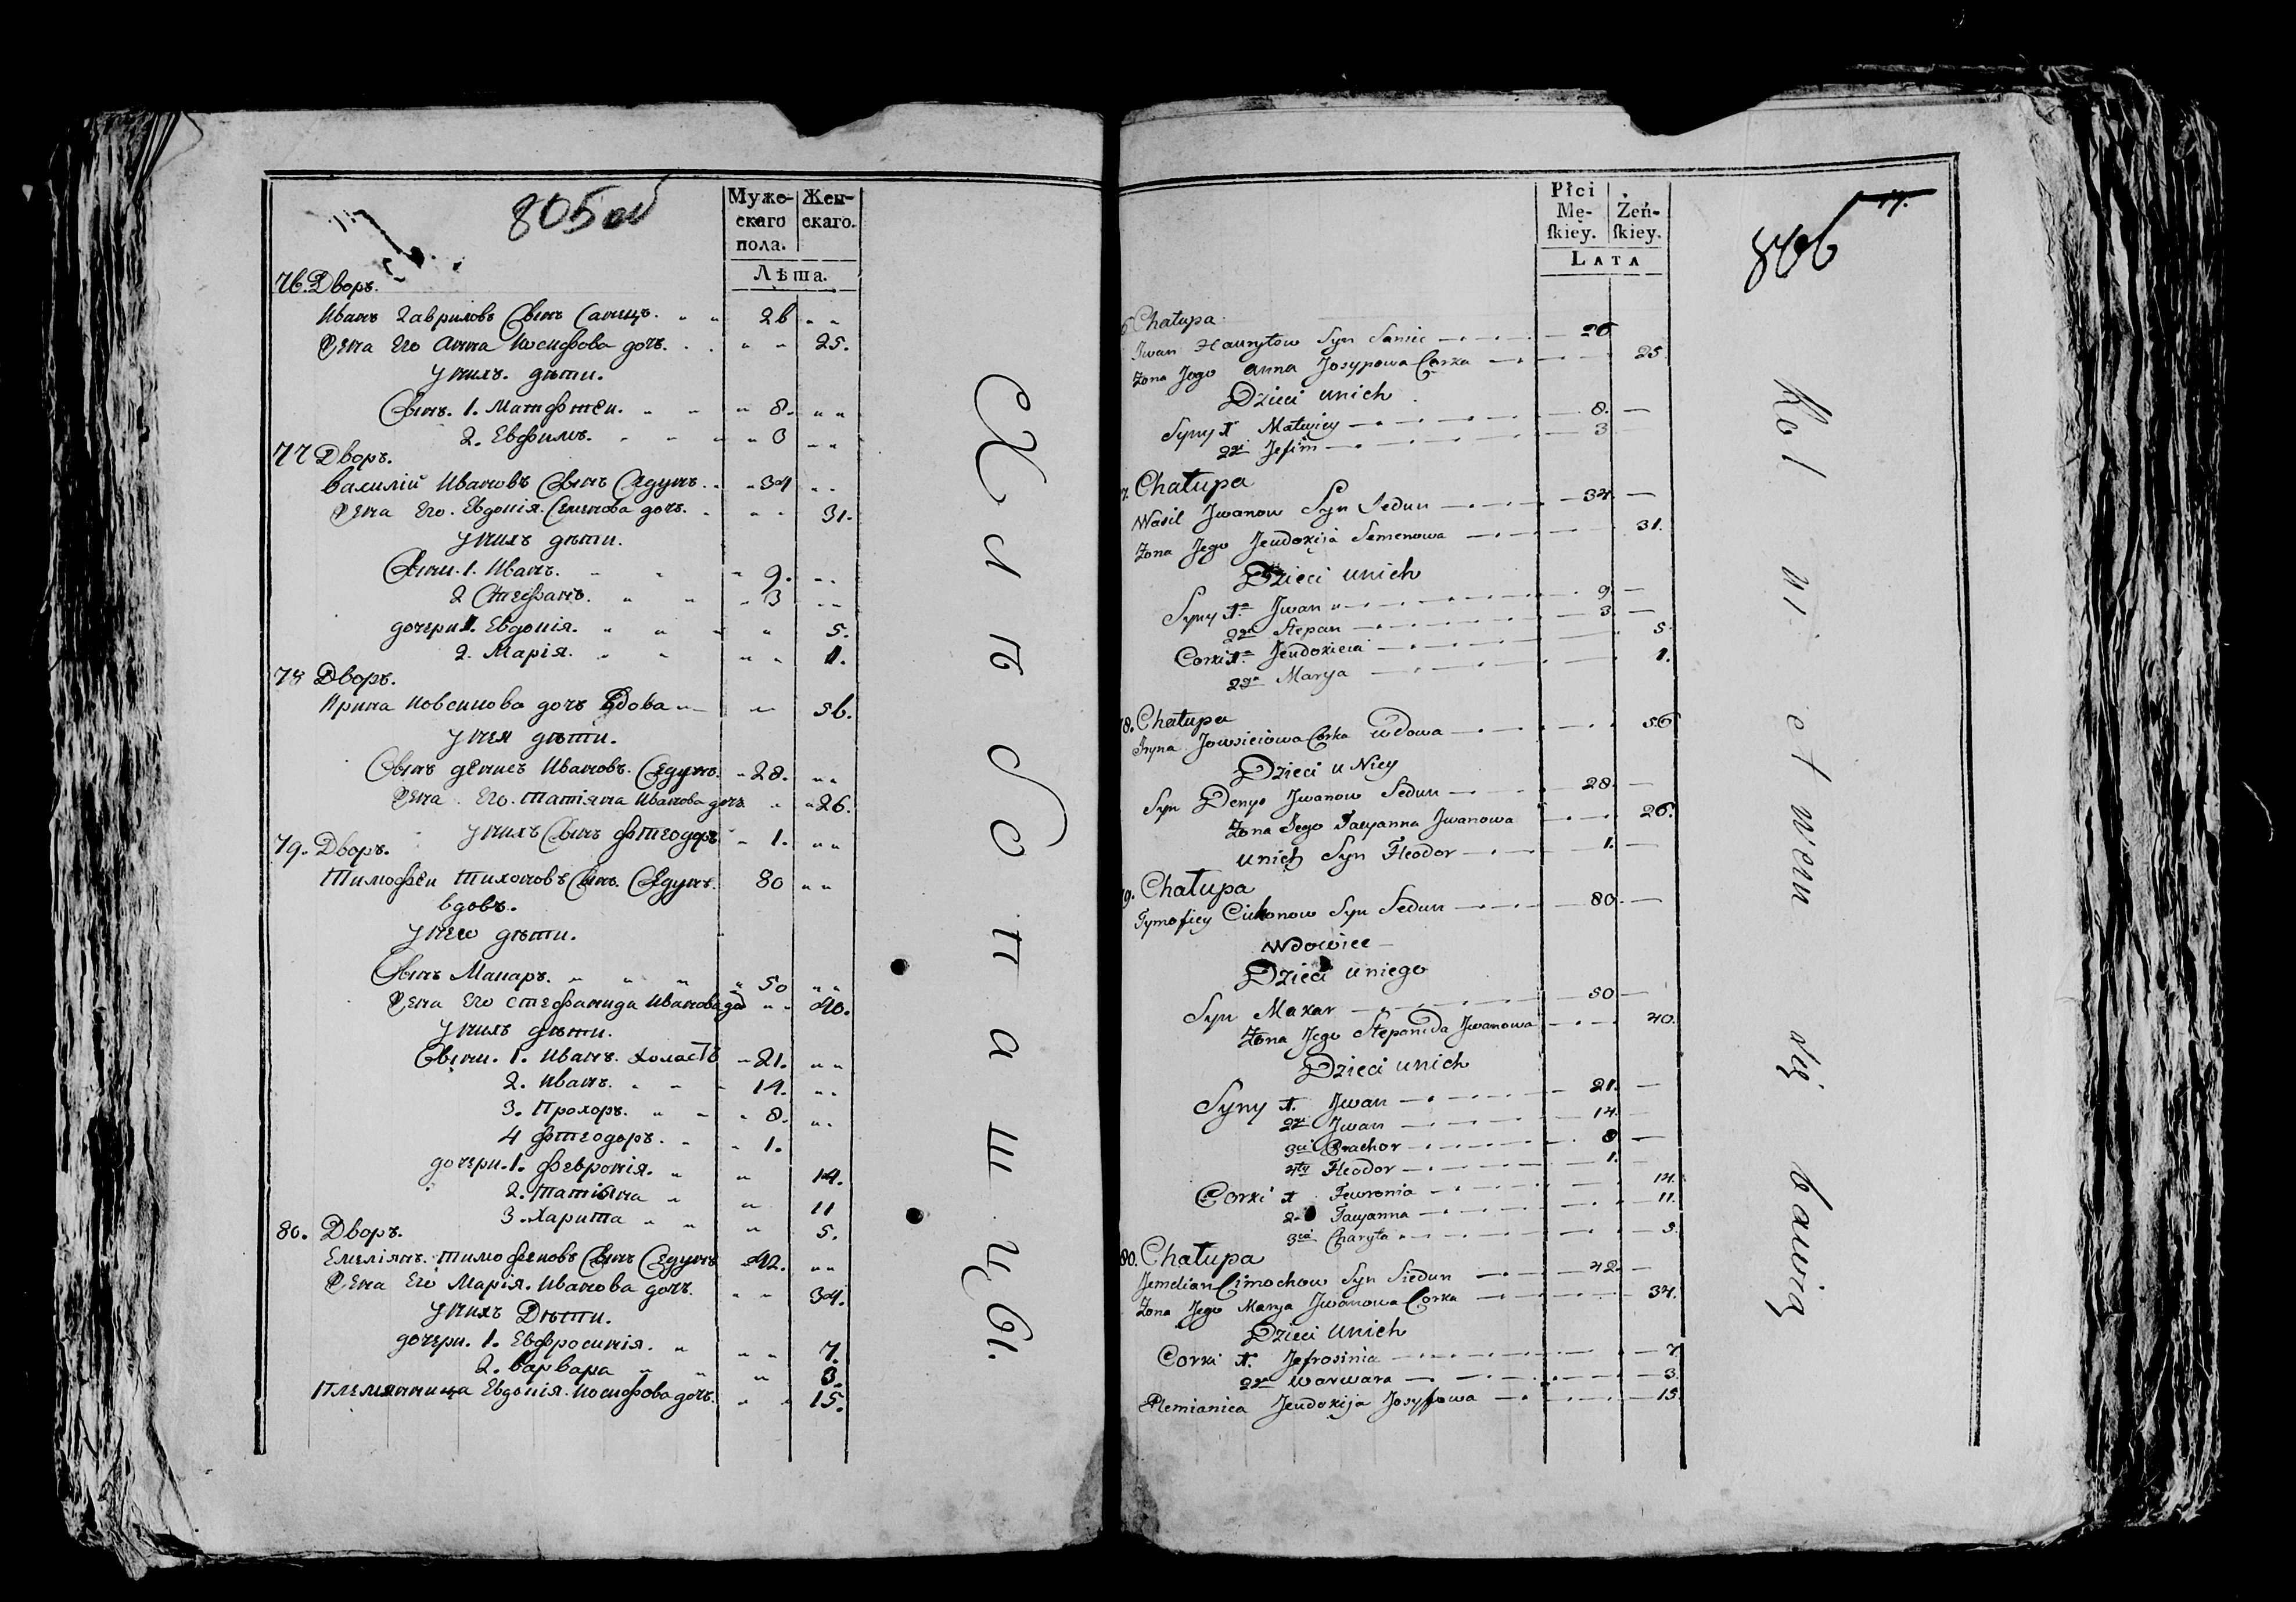 805 об
Муже-
скаго
пола.
Жен-
скаго.
Лѣта.
76. Дворъ.
Иванъ Гавриловъ Сынъ Саницъ. 26
Жена Его Анна Иосифова дочь. 25.
у нихъ дѣти.
Сыны. 1. Матфтей. 8.
2. Евфимъ. 3
77 Дворъ.
Василій Ивановъ Сынъ Седунъ. 34
Жена Его. Евдокія. Семенова дочь. 31.
у нихъ дѣти.
Сыны. 1. Иванъ. 9.
2 Стефанъ. 3
дочери 1. Евдокія. 5.
2. Марія. 1.
78 Дворъ.
Ирина Иовсикова дочь Вдова 56.
у нея дѣти.
Сынъ денисъ Ивановъ. Седунъ. 28.
Жена Его. Татіяна Иванова дочь 26.
у нихъ Сынъ фтеодоръ 1.
79. Дворъ.
Тимофей Тихоновъ Сынъ. Седунъ. 80
вдовъ.
у него дѣти.
Сынъ Макаръ. 50
Жена Его Стефанида Иванова до 40.
у нихъ дѣти.
Сыны. 1. Иванъ. холастъ 21.
2. Иванъ. 14.
3. Прохоръ. 8.
4 фтеодоръ. 1.
дочери. 1. Февронія. 14.
2. Татіяна 11
3. Харита 5.
80. Дворъ.
Емеліянъ. Тимофеновъ Сынъ Седунъ 42.
Жена Его Марія. Иванова дочь. 34.
у нихъ Дѣти.
дочери. 1. Евфросинія. 7.
2. Варвара 3.
Племянница Евдокія. Иосифова дочь. 15.
Płci
Mę-
ſkiey.
Żeń-
ſkiey.
LATA
806
77.
Chałupa
Jwan Hauryłow Syn Saniec 26
Żona Jego Anna Josypowa Corka 25.
Dzieci unich
Syny 1 Matwiey 8.
2gi Jefim 3
Chałupa
Wasil Jwanow Syn Sedun 34
Żona Jego Jeudokija Semenowa 31.
Dzieci unich
Syny 1. Jwan 9
2gi Stepan 3.
Corki 1. Jeudokieia 5
2ga Marya 1.
8. Chałupa
Iryna Jowsiciowa Corka wdowa 56
Dzieci u Niey
Syn Denys Jwanow Sedun 28.
Żona Jego Tacyanna Jwanowa 26.
unich Syn Fteodor 1.
9. Chałupa
Tymofiey Cichonow Syn Sedun 80
Wdowiec
Dzieci uniego
Syn Makar 50
Żona Jego Stepanida Jwanowa 40.
Dzieci unich
Syny 1. Jwan 21.
2gi Jwan 14.
3ci Prachor 8
4ty Fteodor 1.
Corki 1 Fewronia 14.
2 Tacyanna 11.
3cia Charyta 5.
80. Chałupa
Jemelian Cimochow Syn Siedun 42.
Żona Jego Marya Jwanowa Corka 34.
Dzieci unich
Corki 1. Jefrosinia 7
2ga Warwara 3.
Plemianica Jeudokija Josyfowa 15